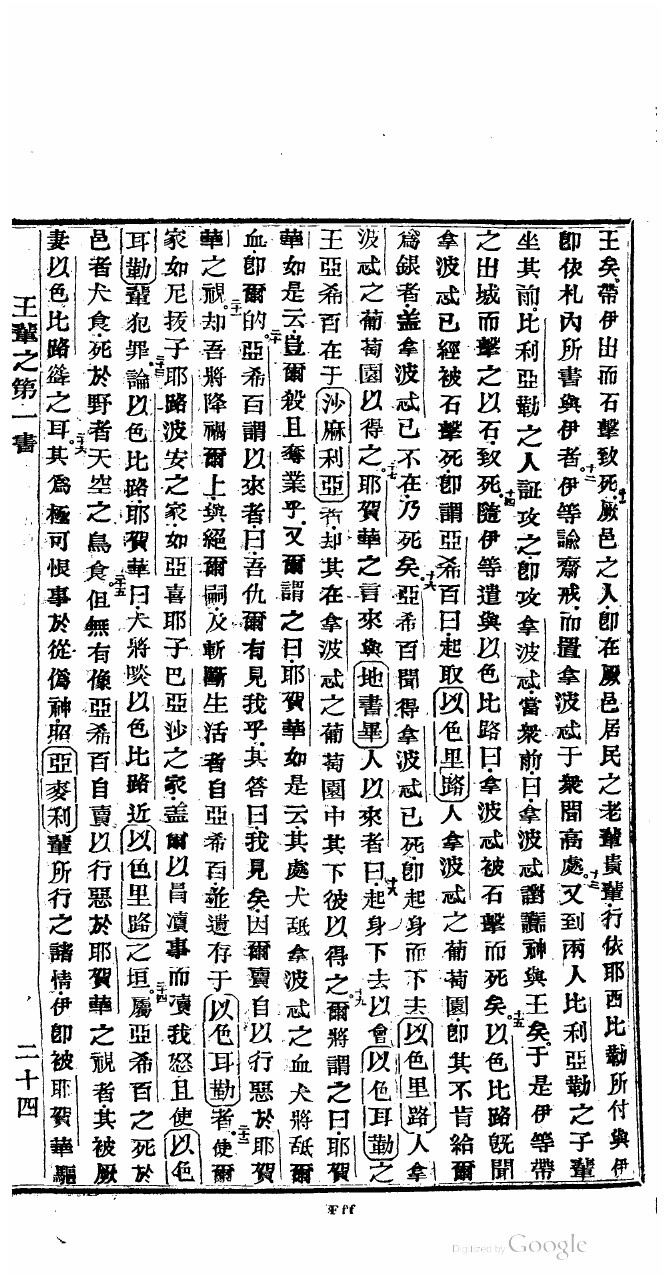 王矣帶伊出而石擊致死十一厥邑之人卽在厥邑居民之老輩貴輩行依耶西比勒所付與伊
卽依札內所書與伊者十二伊等諭齋戒而置拿波忒于衆間高處十三又到兩人比利亞勒之子輩
坐其前比利亞勒之人証攻之卽攻拿波忒當衆前曰拿波忒謝讟神與王矣于是伊等帶
之出城而擊之以石致死十四隨伊等遣與以色比路曰拿波忒被石擊而死矣十五以色比路旣聞
拿波忒已經被石擊死卽謂亞希百曰起取以色里路人拿波忒之葡萄園卽其不肯給爾
爲銀者蓋拿波忒已不在乃死矣十六亞希百聞得拿波忒已死卽起身而下去以色里路人拿
波忒之葡萄園以得之十七耶賀華之言來與地書畢人以來者曰十八起身下去以會以色耳勒之
王亞希百在于沙麻利亞者却其在拿波忒之葡萄園中其下彼以得之十九爾將謂之曰耶賀
華如是云豈爾殺且奪業乎又爾謂之曰耶賀華如是云其處犬舐拿波忒之血犬將舐爾
血卽爾的二十亞希百謂以來者曰吾仇爾有見我乎其答曰我見矣因爾賣自以行惡於耶賀
華之視二十一却吾將降禍爾上與絕爾嗣及斬斷生活者自亞希百並遺存于以色耳勒者二十二使爾
家如尼拔子耶路波安之家如亞喜耶子巴亞沙之家蓋爾以爲瀆事而瀆我怒且使以色
耳勒輩犯罪二十三論以色比路耶賀華曰犬將啖以色比路近以色里路之垣二十四屬亞希百之死於
邑者犬食死於野者天空之鳥食二十五但無有像亞希百自賣以行惡於耶賀華之視者其被厥
妻以色比路聳之耳二十六其爲極可恨事於從僞神照亞麥利輩所行之諸情伊卽被耶賀華驅
王輩之第一書
二十四
Fff
Digitized by Google